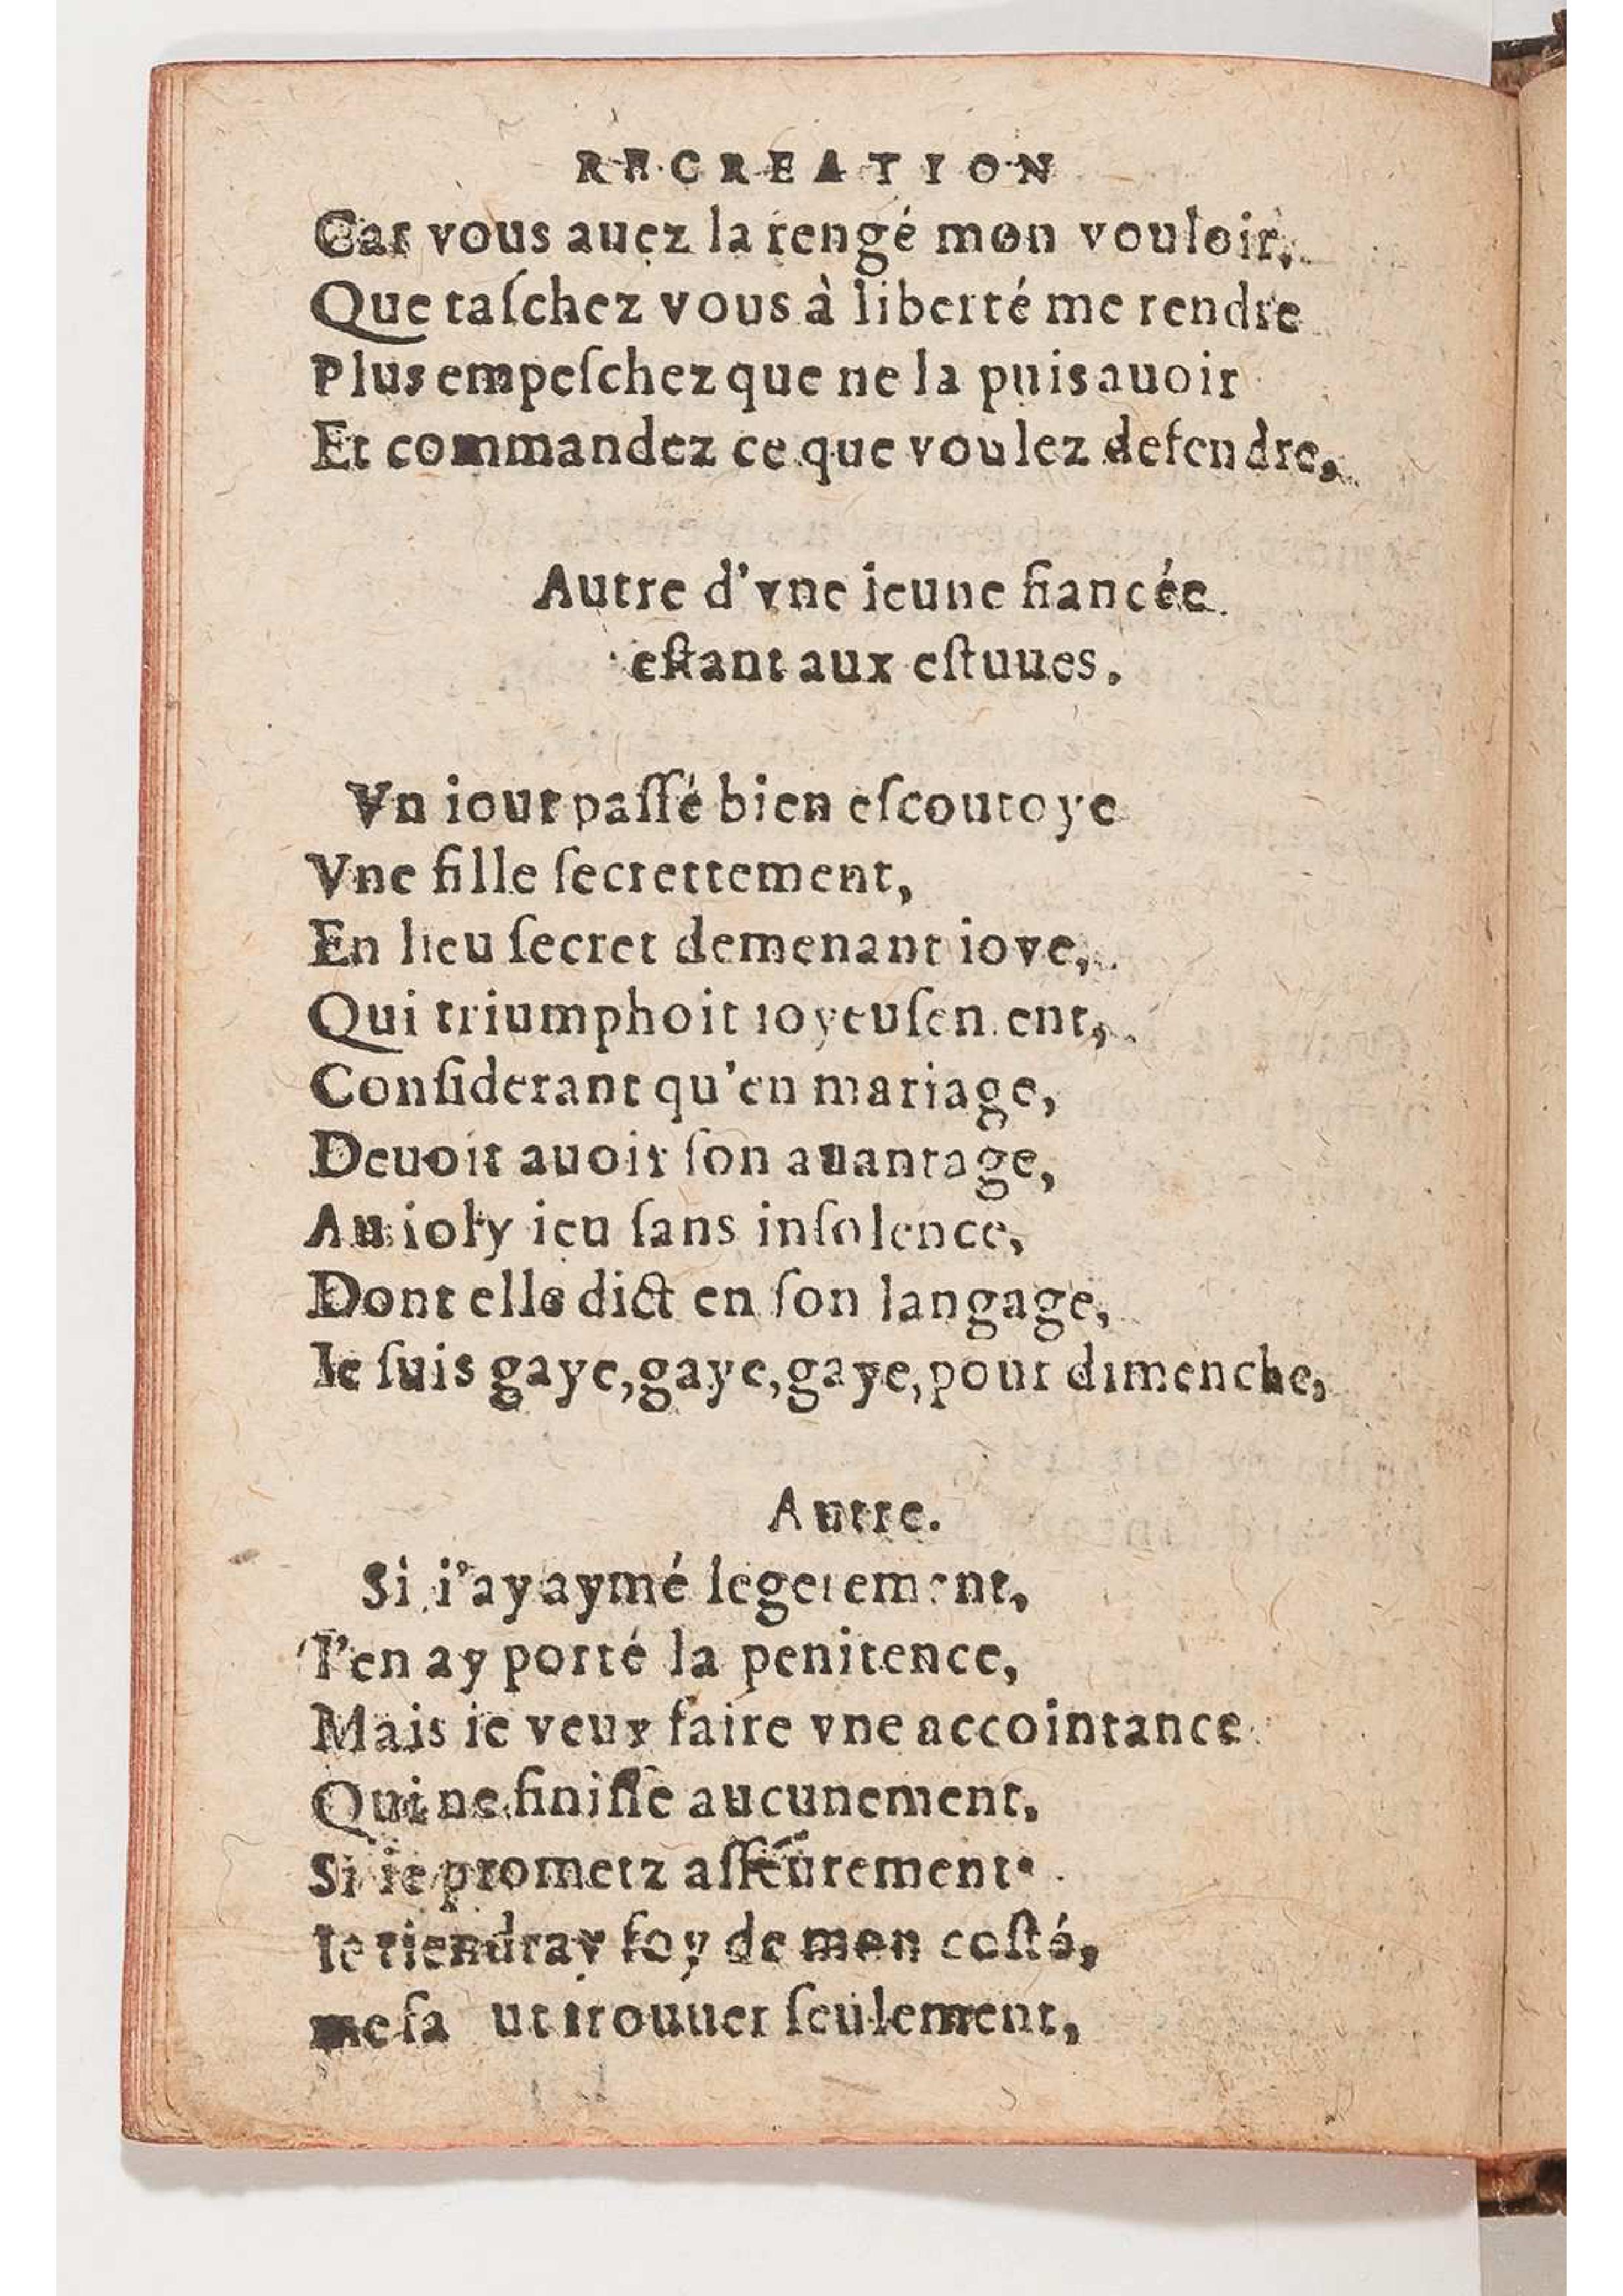 RECREATION
Car vous auez la rengé mon vouloir,
Que taſchez vous à liberté me rendre
Plus empeſchez que ne la puis auoir
Et commandez ce que voulez defendre,
Autre d'vne ieune fiancée
eſtant aux eſtuues.
Vn iour paſſé bien eſcoutoye
Vne fille ſecrettement,
En lieu ſecret demenant ioye,
Qui triumphoit ioyeuſement,
Conſiderant qu'en mariage,
Deuoit auoir ſon auantage,
Au ioly ieu ſans inſolence,
Dont elle dict en ſon langage,
Ie ſuis gaye, gaye, gaye, pour dimenche,
Autre.
Si i'ay aymé legerement,
I'en ay porté la penitence,
Mais ie veux faire vne accointance
Qui ne finiſſe aucunement,
Si ie prometz aſſeurement.
Ie tiendray foy de mon coſté,
me fa ut trouuer ſeulement,